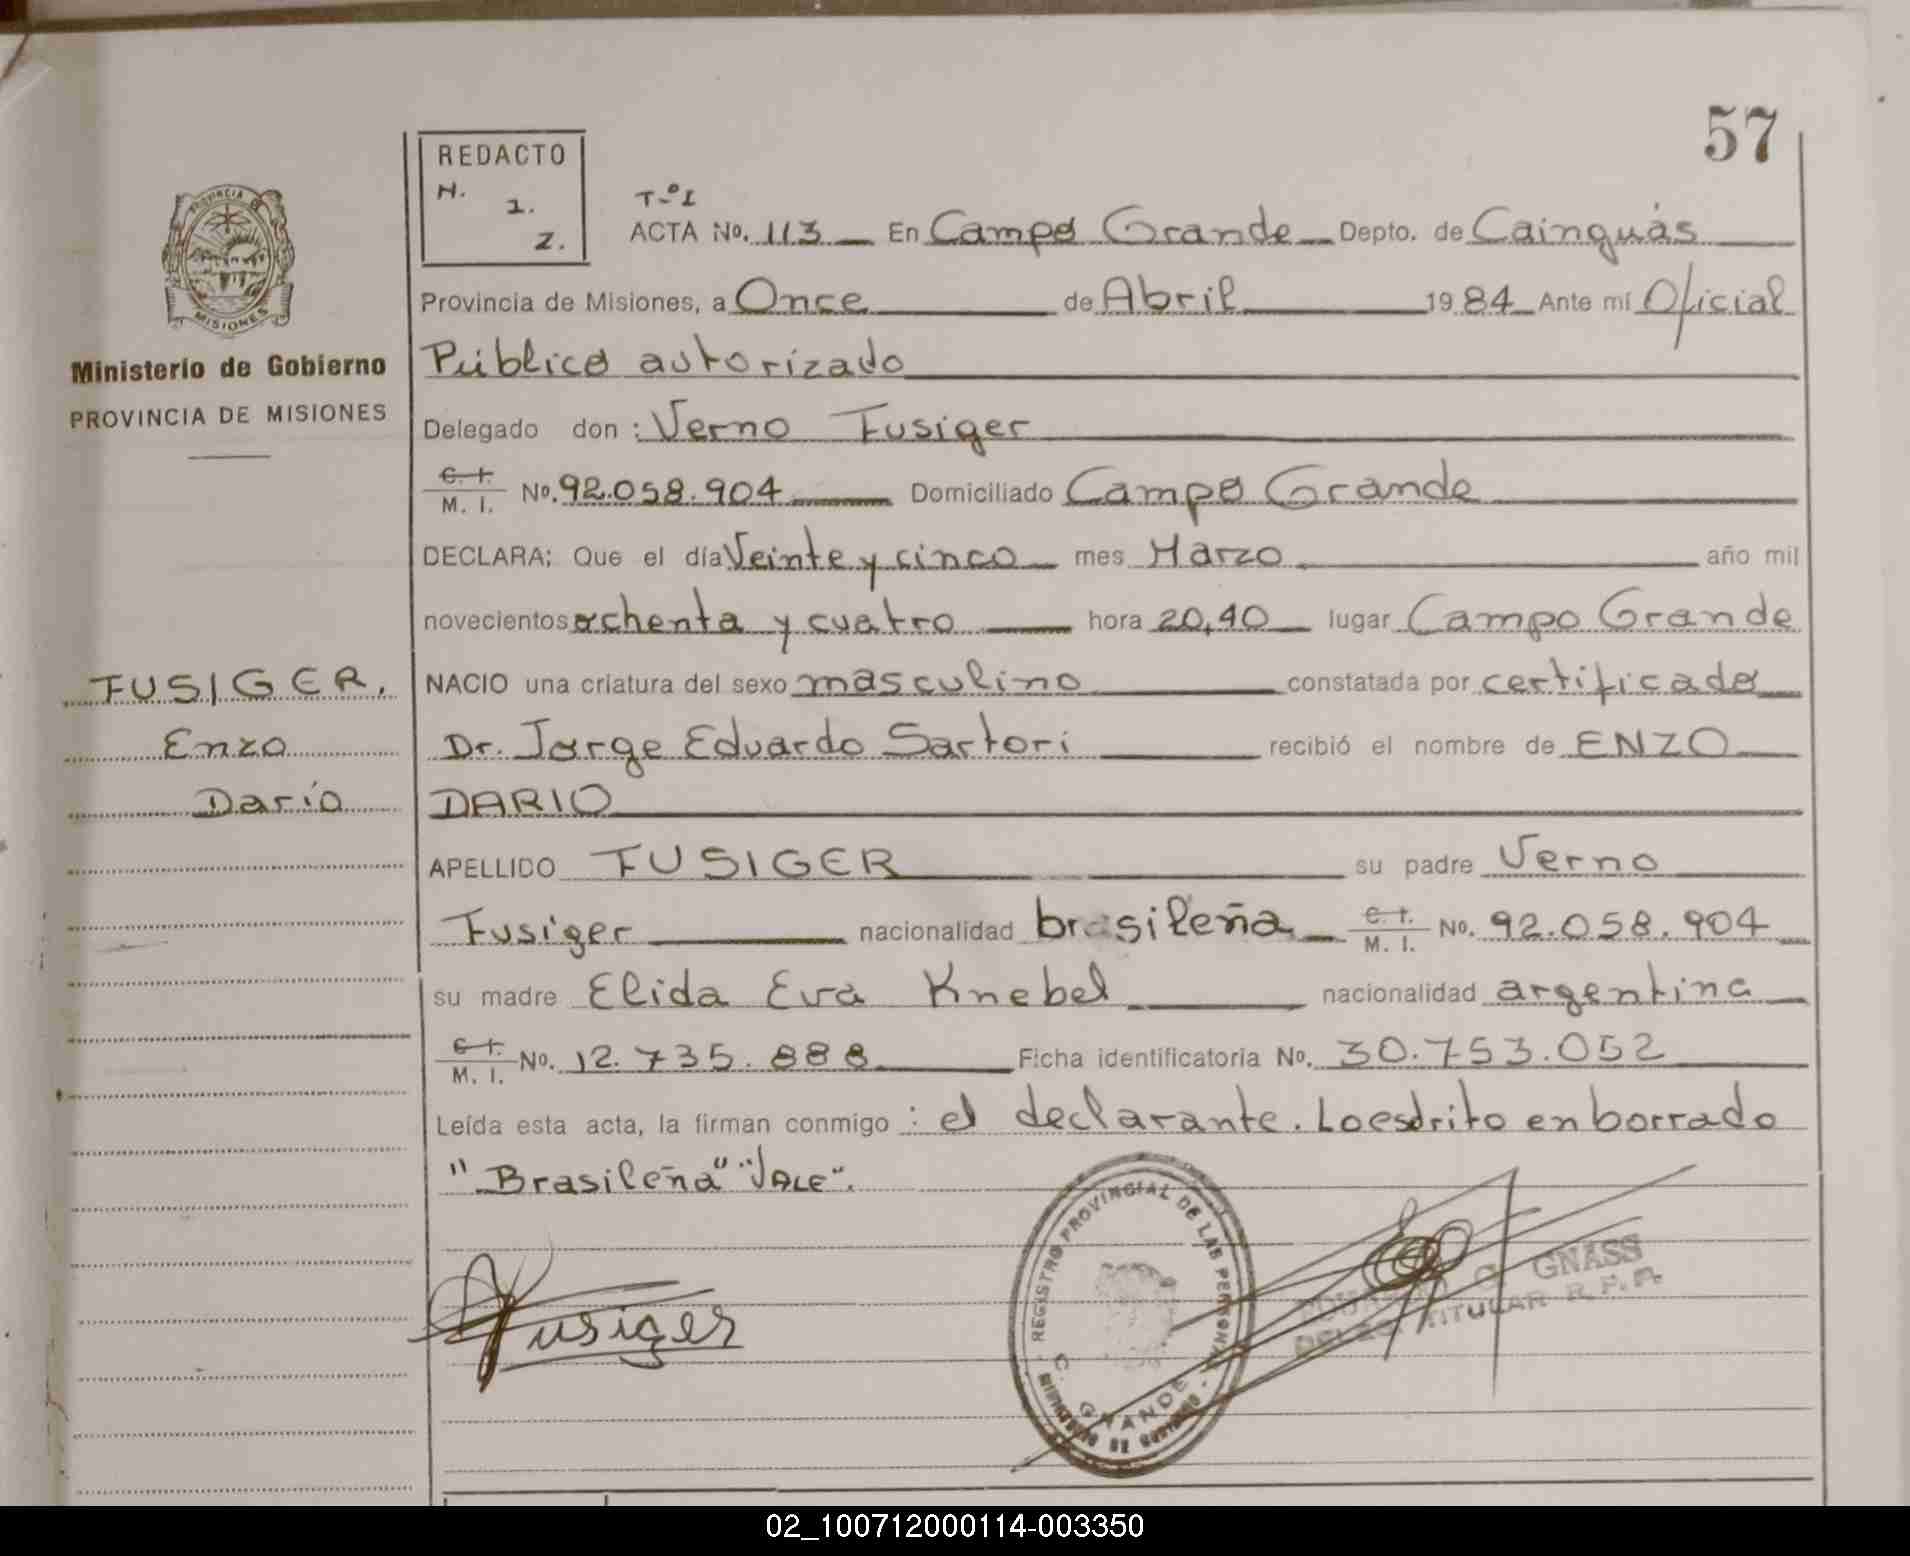 57
REDACTO
H.
1.
Z.
T-º I
ACTA No. 113 En Campo Grande Depto. de Cainguás
Provincia de Misiones, a Once de Abril 1984 Ante mí Oficial
Público autorizado
Delegado don: Verno Fusiger
C. I.
M. I. No. 92.058.904 Domiciliado Campo Grande
DECLARA; Que el día Veinte y cinco mes Marzo año mil
novecientos ochenta y cuatro hora 20,40 lugar Campo Grande
NACIO una criatura del sexo masculino constatada por certificado
Dr. Jorge Eduardo Sartori recibió el nombre de ENZO
DARIO
APELLIDO FUSIGER su padre Verno
Fusiger nacionalidad brasileña C. I.
M. I. No. 92.058.904
su madre Elida Eva Knebel nacionalidad argentina
C. I.
M. I. No. 12.735.888 Ficha identificatoria No. 30.753.052
Leída esta acta, la firman conmigo: el declarante. Loesdrito en borrado
"Brasileña" "VALE".
PROVINCIA DE
MISIONES
Ministerio de Gobierno
PROVINCIA DE MISIONES
FUSIGER,
Enzo
Darío
Fusiger
REGISTRO PROVINCIAL DE LAS PERSONAS
C. GRANDE
GNASS
TITULAR R.P.P.
02_100712000114-003350